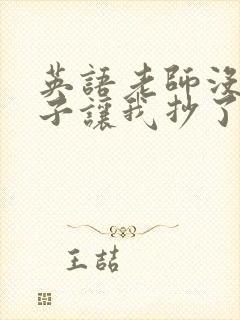 英語老師沒
子讓我抄了
王喆